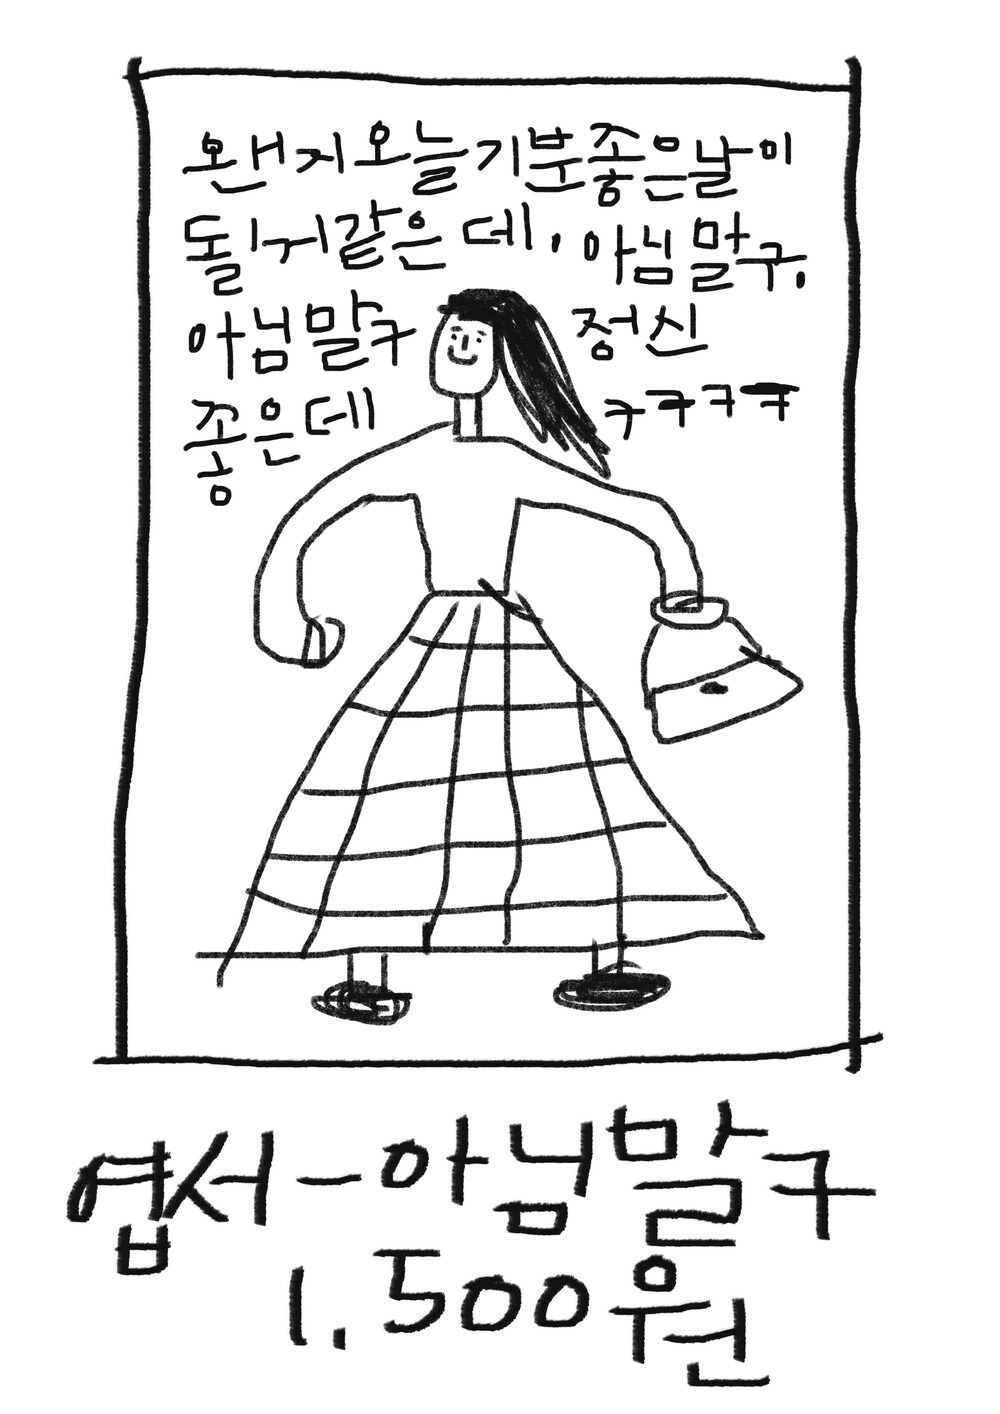 왠지오늘기분좋은날이
될거같은데. 아님말구.
아님말구 정신
좋은데 ㅋㅋㅋㅋ
엽서-아님말구
1,500원